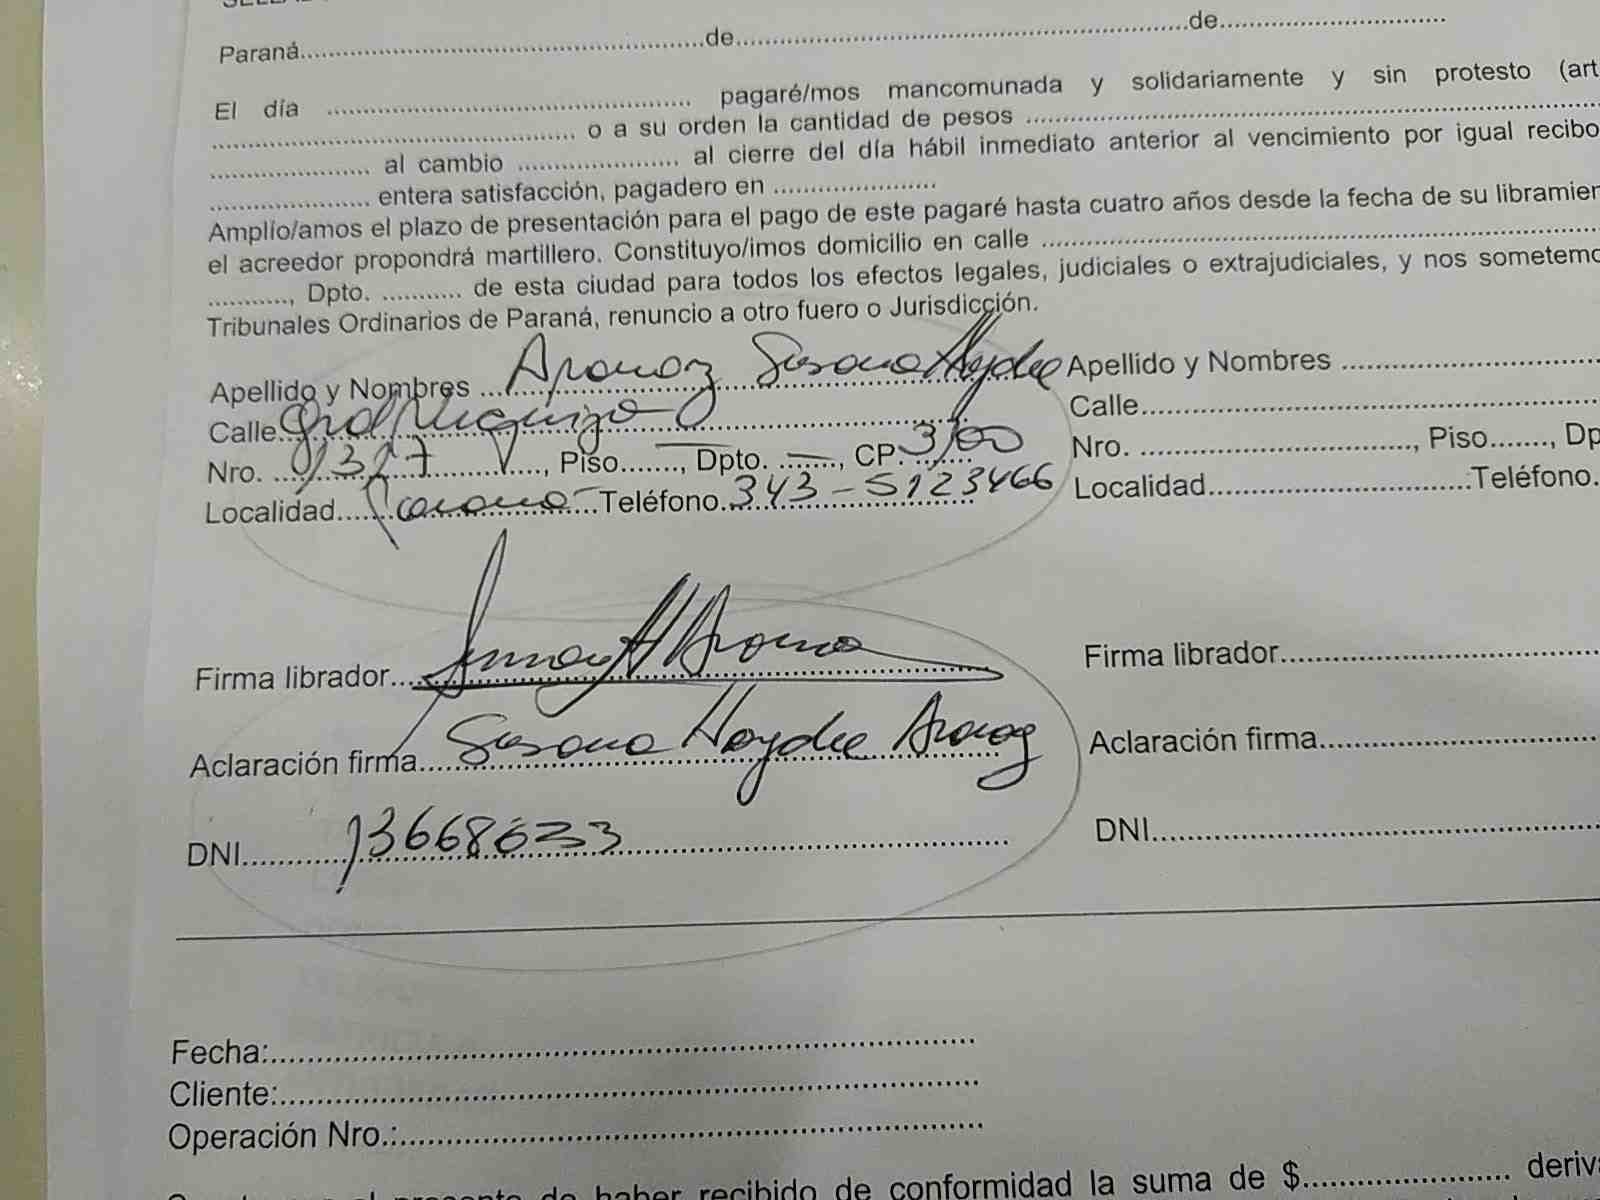 Paraná..........de..........de..........
El día .......... pagaré/mos mancomunada y solidariamente y sin protesto (art
.......... o a su orden la cantidad de pesos ..........
.......... al cambio .......... al cierre del día hábil inmediato anterior al vencimiento por igual recibo
.......... entera satisfacción, pagadero en ..........
Amplío/amos el plazo de presentación para el pago de este pagaré hasta cuatro años desde la fecha de su libramien
el acreedor propondrá martillero. Constituyo/imos domicilio en calle ..........
.........., Dpto. .......... de esta ciudad para todos los efectos legales, judiciales o extrajudiciales, y nos sometemo
Tribunales Ordinarios de Paraná, renuncio a otro fuero o Jurisdicción.
Apellido y Nombres ..... Araoz Susana Haydee Apellido y Nombres ..........
Calle.. Calle..........
Nro. ..1327.........., Piso......., Dpto. ......, CP. 3100 Nro. .........., Piso......., Dp
Localidad.....Paraná.....Teléfono.343-5123466 Localidad..........Teléfono.
Firma librador.......... Firma librador..........
Aclaración firma..... Susana Haydee Araoz Aclaración firma..........
DNI..........13668633.......... DNI..........
Fecha:..........
Cliente:..........
Operación Nro.:..........
haber recibido de conformidad la suma de $.......... deriva